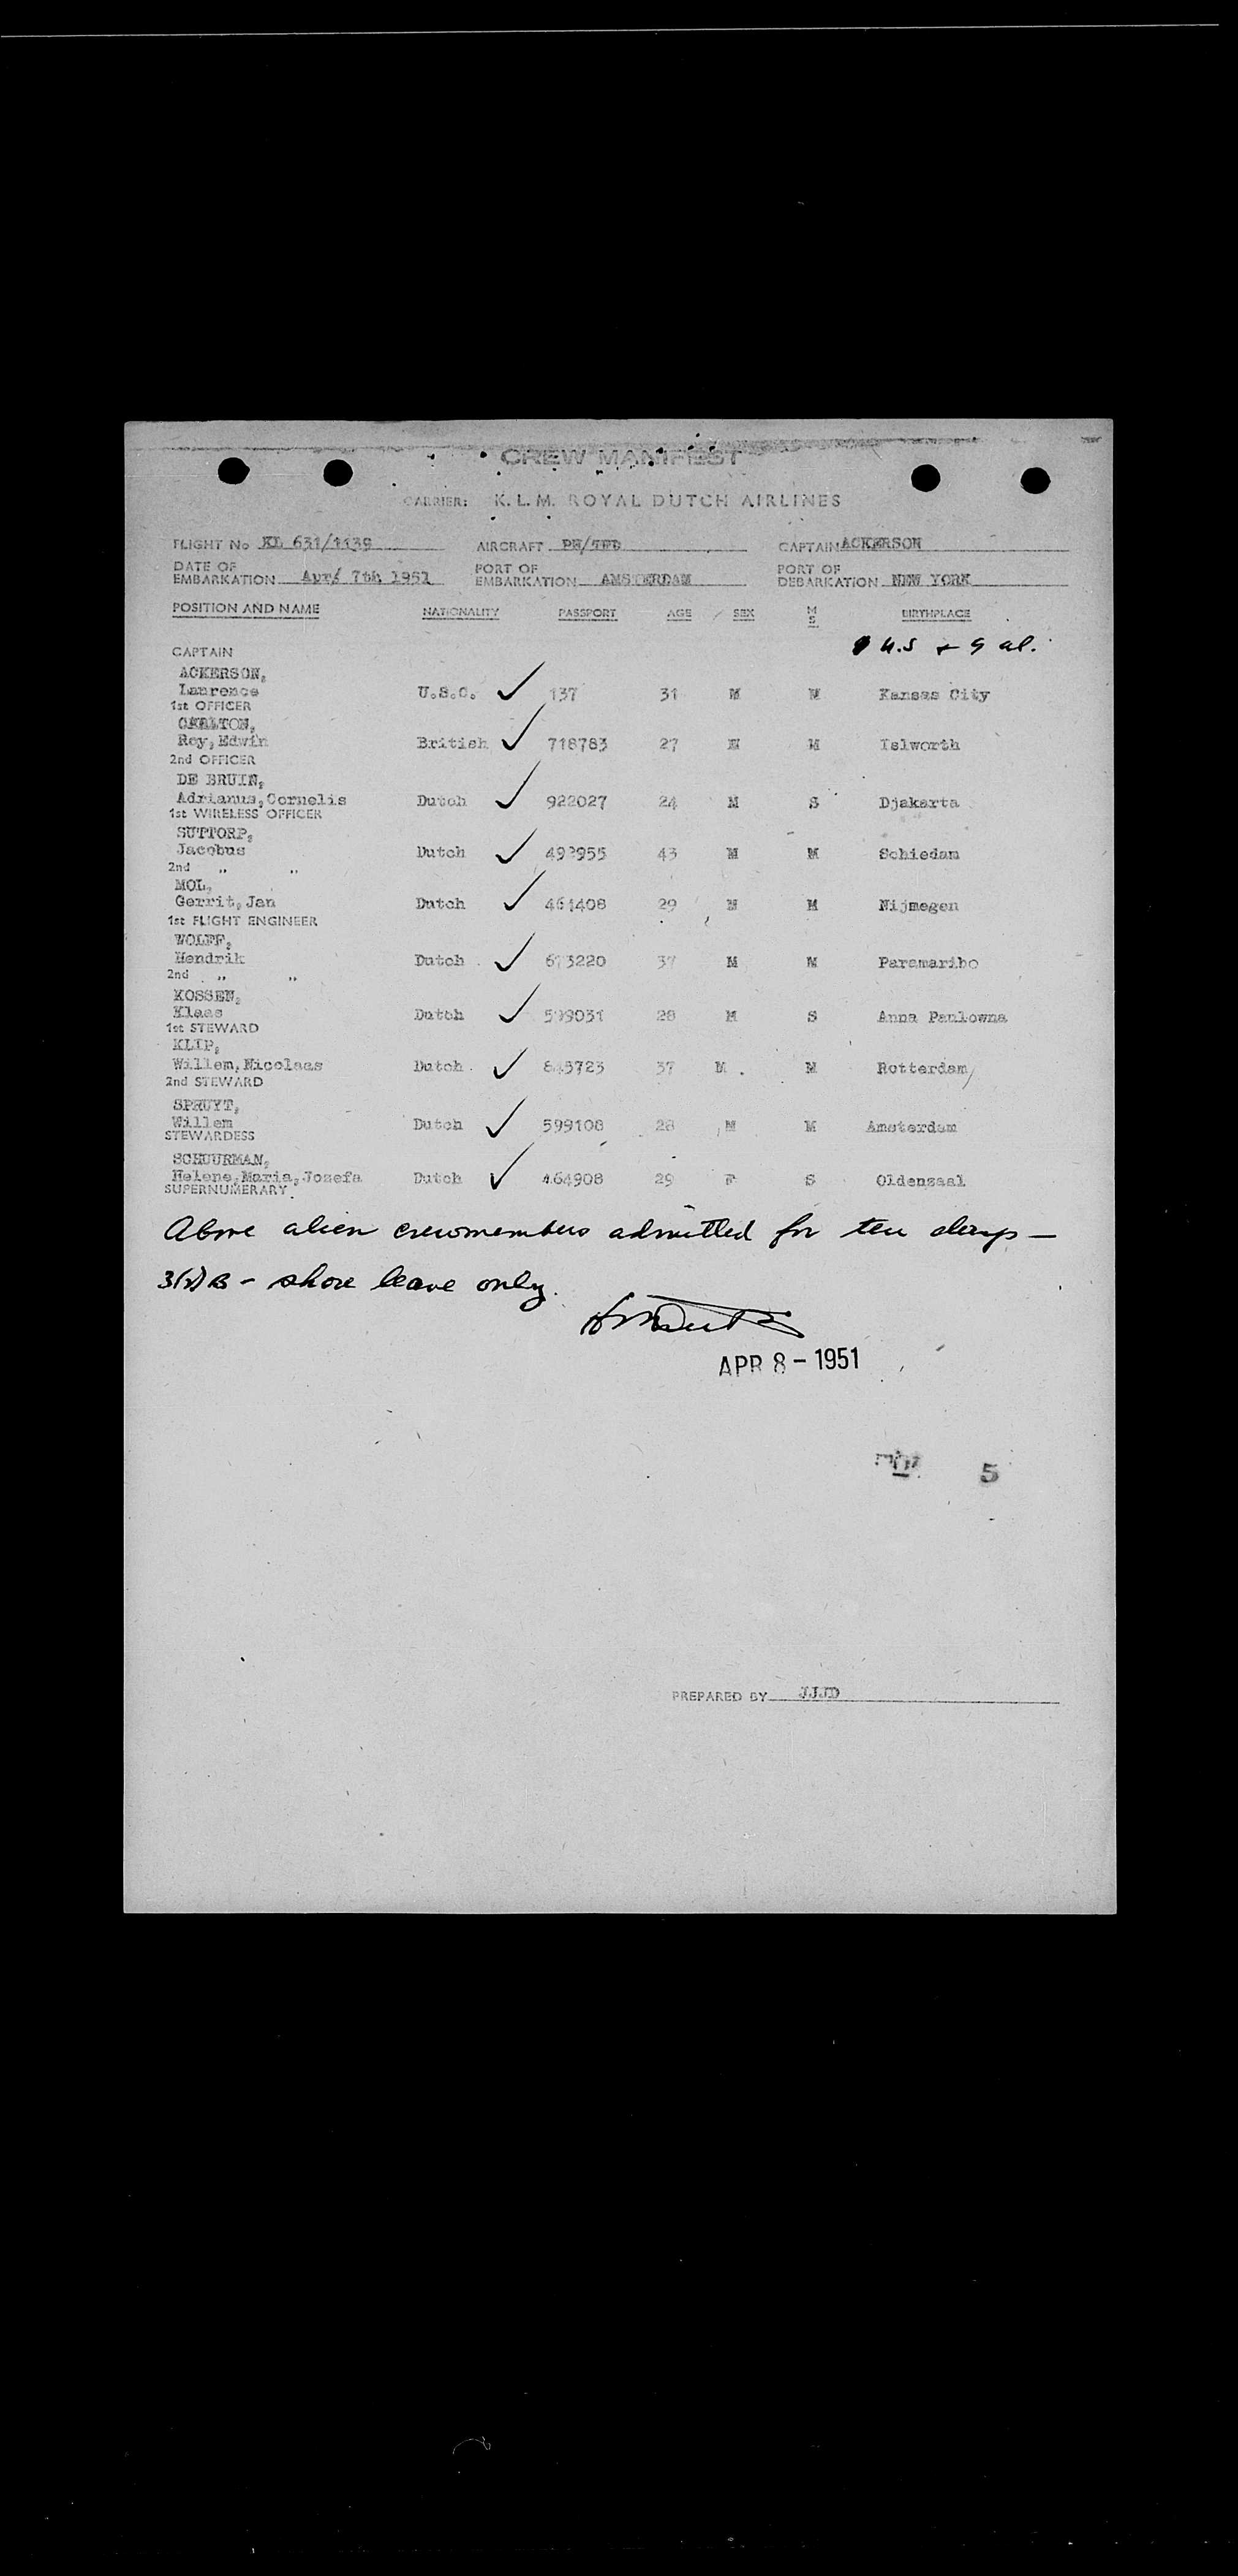 CREW MANIFEST
CARRIER: K.L.M. ROYAL DUTCH AIRLINES
FLIGHT No KL 631/1139 AIRCRAFT PH/TFD CAPTAIN ACKERSON
DATE OF EMBARKATION Apr/ 7th 1951 PORT OF EMBARKATION AMSTERDAM PORT OF DEBARKATION NEW YORK
POSITION AND NAME NATIONALITY PASSPORT AGE SEX M S BIRTHPLACE
U.S + 9 al.
CAPTAIN
ACKERSON,
Laurence U.S.C. ✓ 137 31 M M Kansas City
1st OFFICER
CARLTON,
Roy, Edwin British ✓ 718783 27 M M Islworth
2nd OFFICER
DE BRUIN,
Adrianus, Cornelis Dutch ✓ 922027 24 M S Djakarta
1st WIRELESS OFFICER
SUTTORP,
Jacobus Dutch ✓ 492955 43 M M Schiedam
2nd " "
MOL,
Gerrit, Jan Dutch ✓ 461408 29 M M Nijmegen
1st FLIGHT ENGINEER
WOLFF,
Hendrik Dutch ✓ 673220 37 M M Paramaribo
2nd " "
KOSSEN,
Klaas Dutch ✓ 599031 28 M S Anna Paulowna
1st STEWARD
KLIP,
Willem, Nicolaas Dutch ✓ 845723 37 M M Rotterdam
2nd STEWARD
SPRUYT,
Willem Dutch ✓ 599108 28 M M Amsterdam
STEWARDESS
SCHUURMAN,
Helene, Maria, Josefa Dutch ✓ 464908 29 F S Oldenzaal
SUPERNUMERARY
Above alien crewmembers admitted for ten days —
3(5)B - shore leave only.
APR 8 - 1951
5
PREPARED BY JJJD